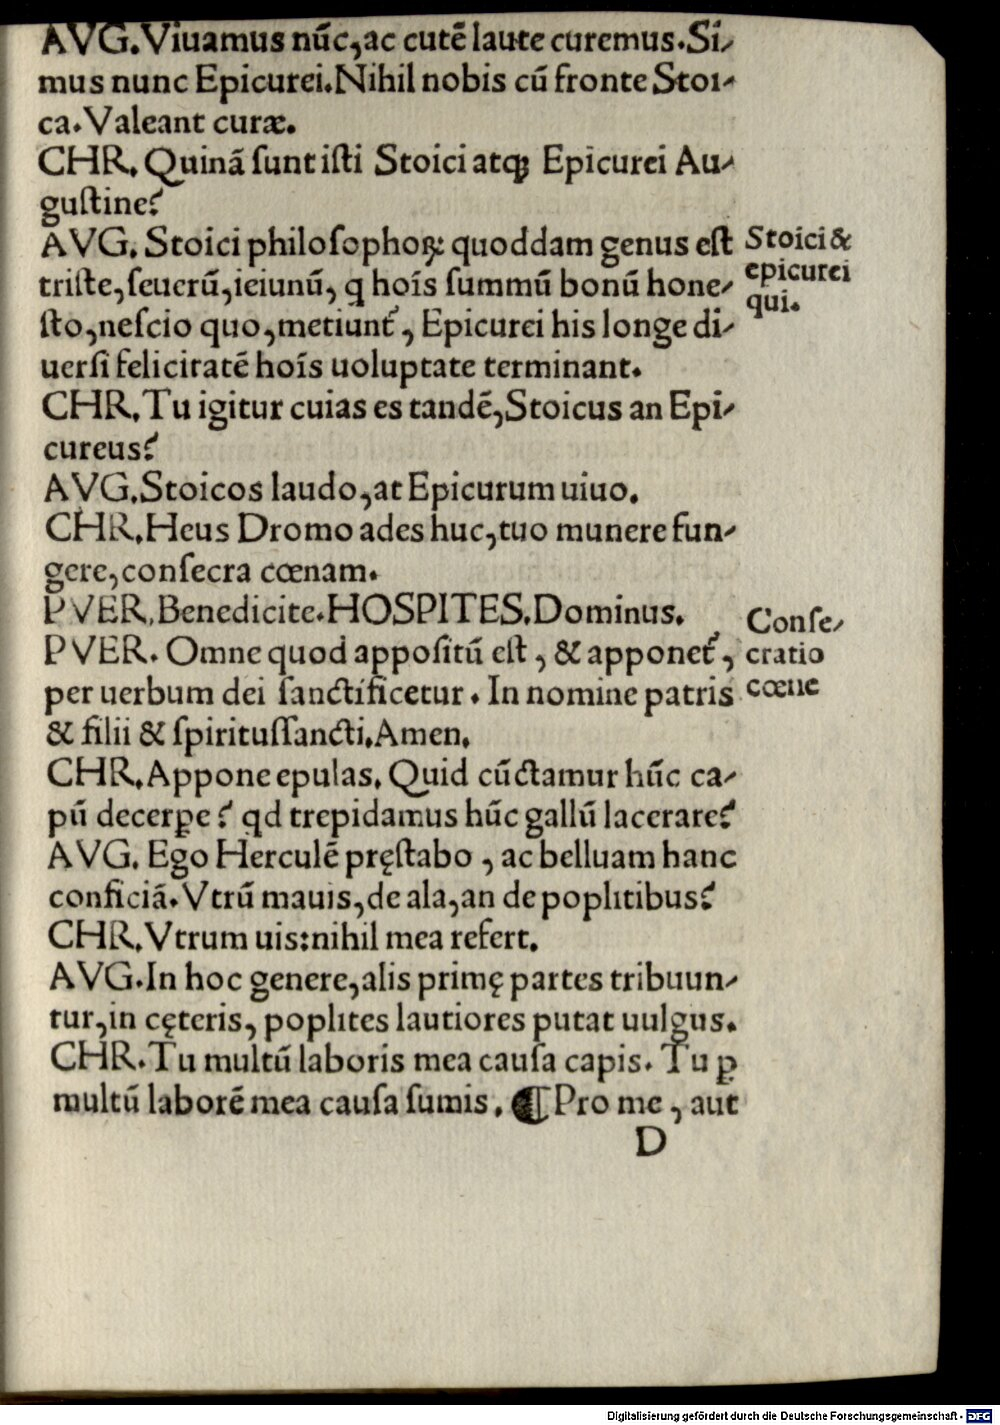 AVG. Viuamus nūc, ac cutē laute curemus. Si⸗
mus nunc Epicurei. Nihil nobis cū fronte Stoi⸗
ca. Valeant curæ.
CHR. Quinā ſunt iſti Stoici atqꝫ Epicurei Au⸗
guſtine?
AVG. Stoici philoſophoꝝ quoddam genus eſt
triſte, ſeuerū, ieiunū, q hoīs ſummū bonū hone⸗
ſto, neſcio quo, metiunt᷒, Epicurei his longe di⸗
uerſi felicitatē hoīs uoluptate terminant.
Stoici &
epicurei
qui.
CHR. Tu igitur cuias es tandē, Stoicus an Epi⸗
cureus?
AVG. Stoicos laudo, at Epicurum uiuo.
CHR. Heus Dromo ades huc, tuo munere fun⸗
gere, conſecra cœnam.
PVER. Benedicite. HOSPITES. Dominus.
PVER. Omne quod appoſitū eſt, & apponet᷒,
per uerbum dei ſanctificetur. In nomine patris
& filii & ſpirituſſancti. Amen.
Conſe⸗
cratio
cœne
CHR. Appone epulas. Quid cūctamur hūc ca⸗
pū decerꝑe? qd trepidamus hūc gallū lacerare?
AVG. Ego Herculē pręſtabo, ac belluam hanc
conficiā. Vtrū mauis, de ala, an de poplitibus?
CHR. Vtrum uis: nihil mea refert.
AVG. In hoc genere, alis primę partes tribuun⸗
tur, in cęteris, poplites lautiores putat uulgus.
CHR. Tu multū laboris mea cauſa capis. Tu ꝑ
multū laborē mea cauſa ſumis. ¶ Pro me, aut
D
Digitalisierung gefördert durch die Deutsche Forschungsgemeinschaft - DFG